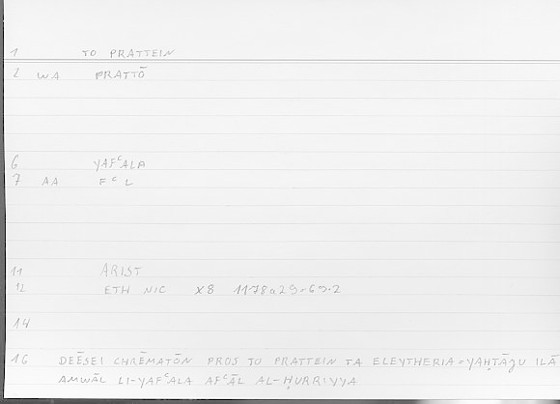 1 TO PRATTEIN
2 WA PRATTŌ
6 YAFᶜALA
7 AA FᶜL
11 ARIST
12 ETH NIC X8 1178a29.69.2
14
16 DEĒSEI CHRĒMATŌN PROS TO PRATTEIN TA ELEYTHERIA = YAḤTĀǦU ILĀ
AMWĀL LI-YAFᶜALA AFᶜĀL AL-ḤURRIYYA